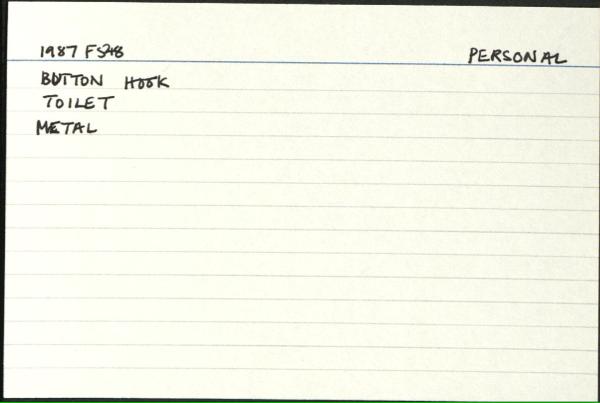 1987 F548 PERSONAL
BUTTON HOOK
TOILET
METAL